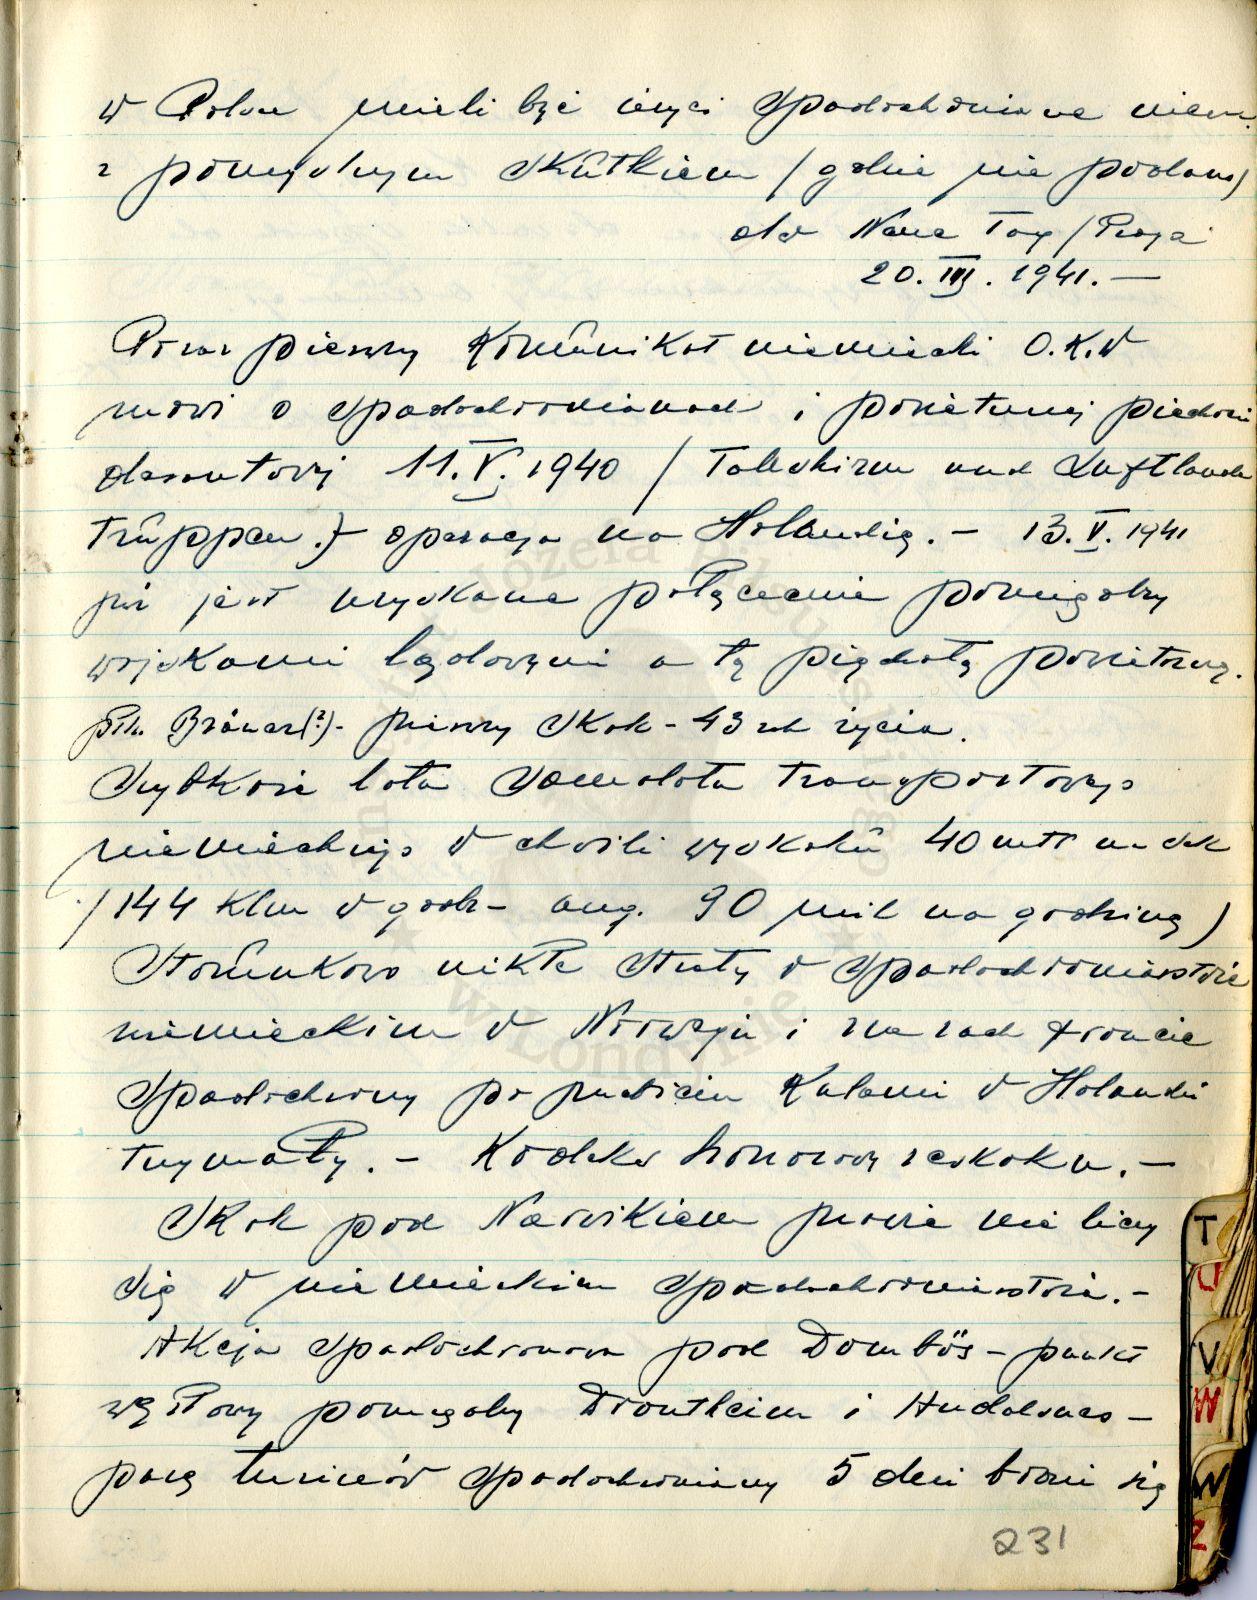 w Polsce mieli być użyci spadochroniarze niem.
z pomyślnym skutkiem / gdzie nie podano)
dod Neue Tag / Praga
20. III. 1941. —
Poraz pierwszy Komunikat niemiecki O.K.W
mówi o spadochroniarzach i powietrznej piechocie
desantowej 11.V.1940 / Fallschirm und Luftlande
truppen.) - operacja na Holandię. - 13.V. 1941
już jest uzyskane połączenie pomiędzy
wojskami lądowymi a tą piechotą powietrzną.
płk. Bräuer(?) - pierwszy skok - 43 rok życia.
Szybkość lotu samolotu transportowego
niemieckiego w chwili wyskoku 40 mtr na sek
/ 144 klm w godz - ang. 90 mil na godzinę)
Stosunkowo nikłe straty w spadochroniarstwie
niemieckim w Norwegii i na zach froncie
Spadochrony po przebiciu kulami w Holandii
trzymały. - Kodeks honorowy zeskoku. -
Skok pod Narvikiem prawie nie liczy
się w niemieckim spadochroniarstwie. -
Akcja spadochronowa pod Dombös - punkt
węzłowy pomiędzy Drontheim i Andalsnes -
parę tuzinów spadochroniarzy 5 dni broni się
231
T
U
V
W
W
Z
Józefa Piłsudskiego
w Londynie